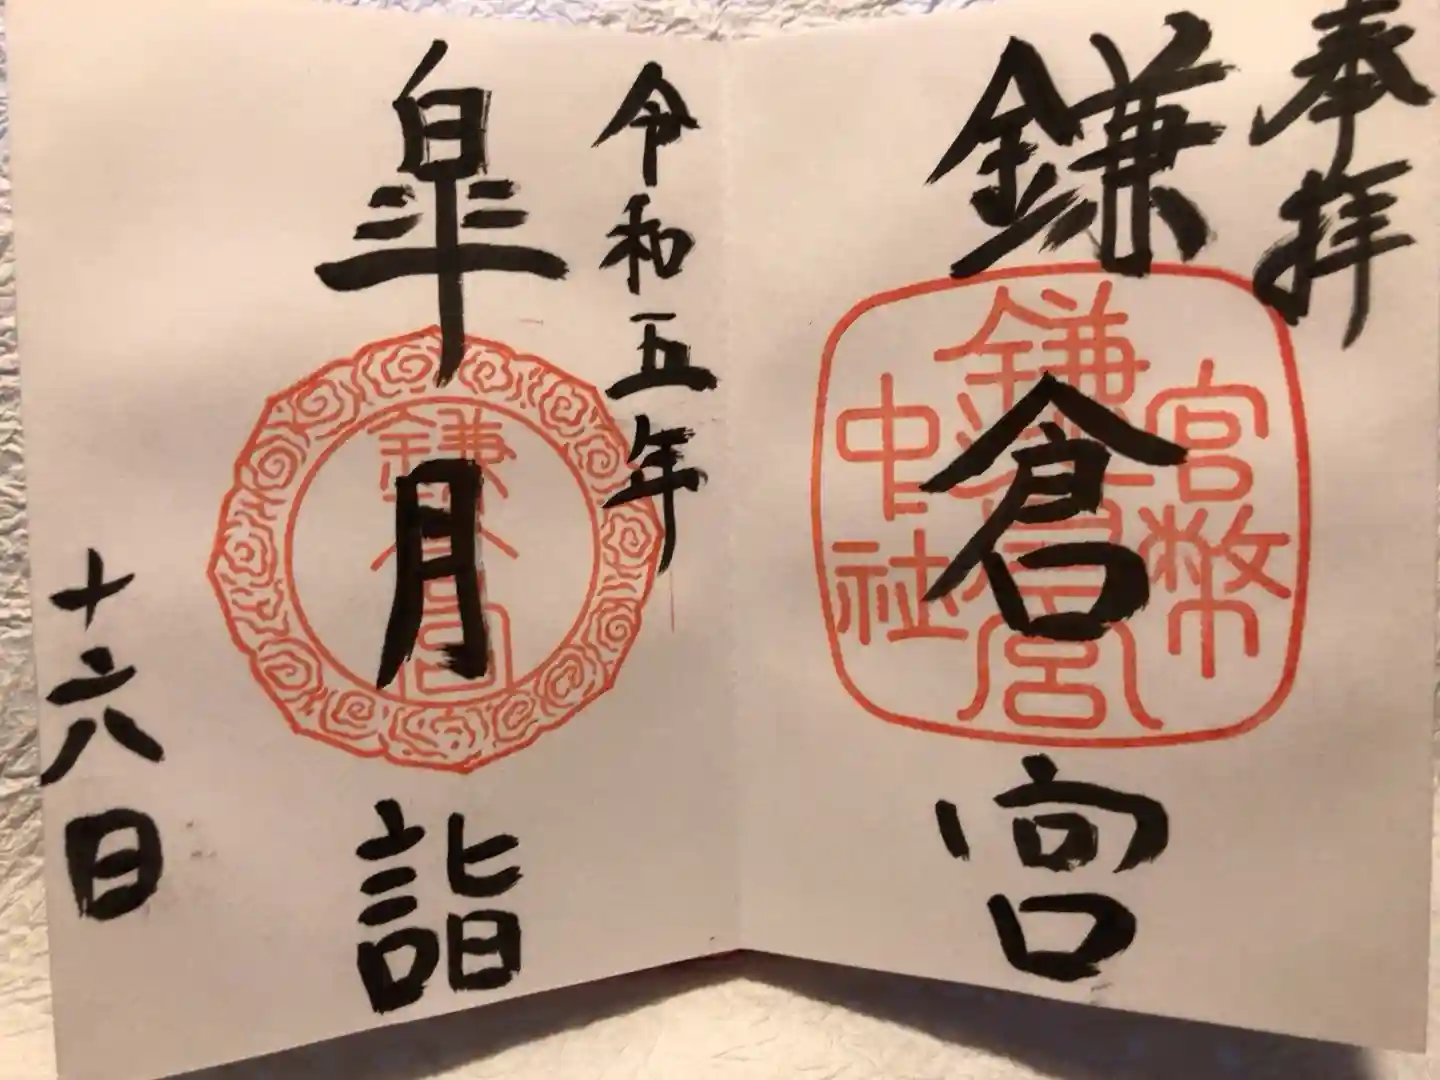 奉拝
鎌倉宮
官幣
鎌倉宮
中社
令和五年
皐月詣
鎌倉宮
十六日